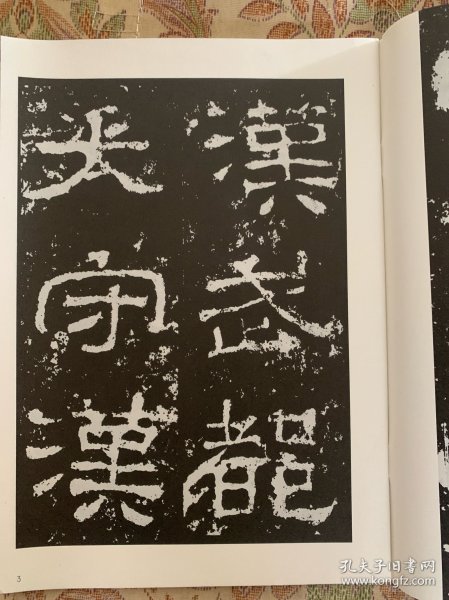 漢武都
太守漢
3
孔夫子旧书网
www.kongfz.com